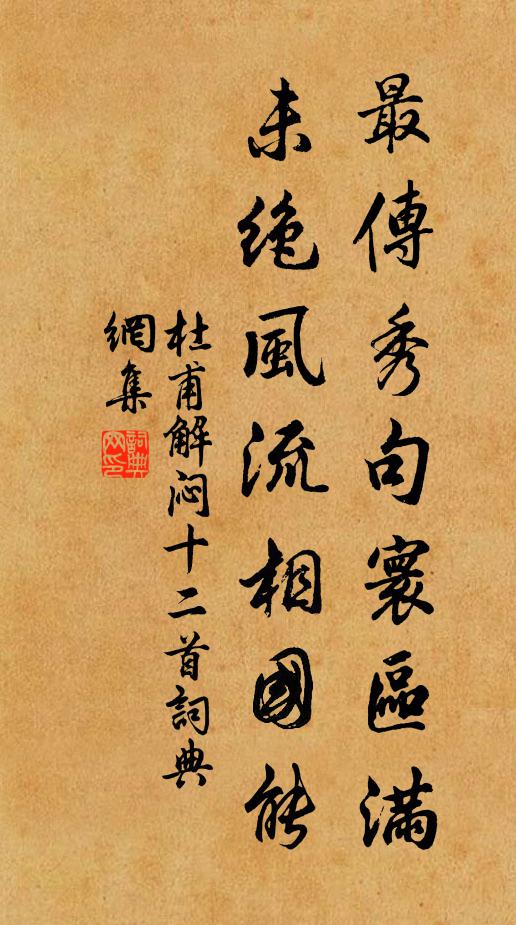 最傳秀句寰區滿
未絶風流相國能
杜甫解闷十二首詞典
網集
詞典
网印